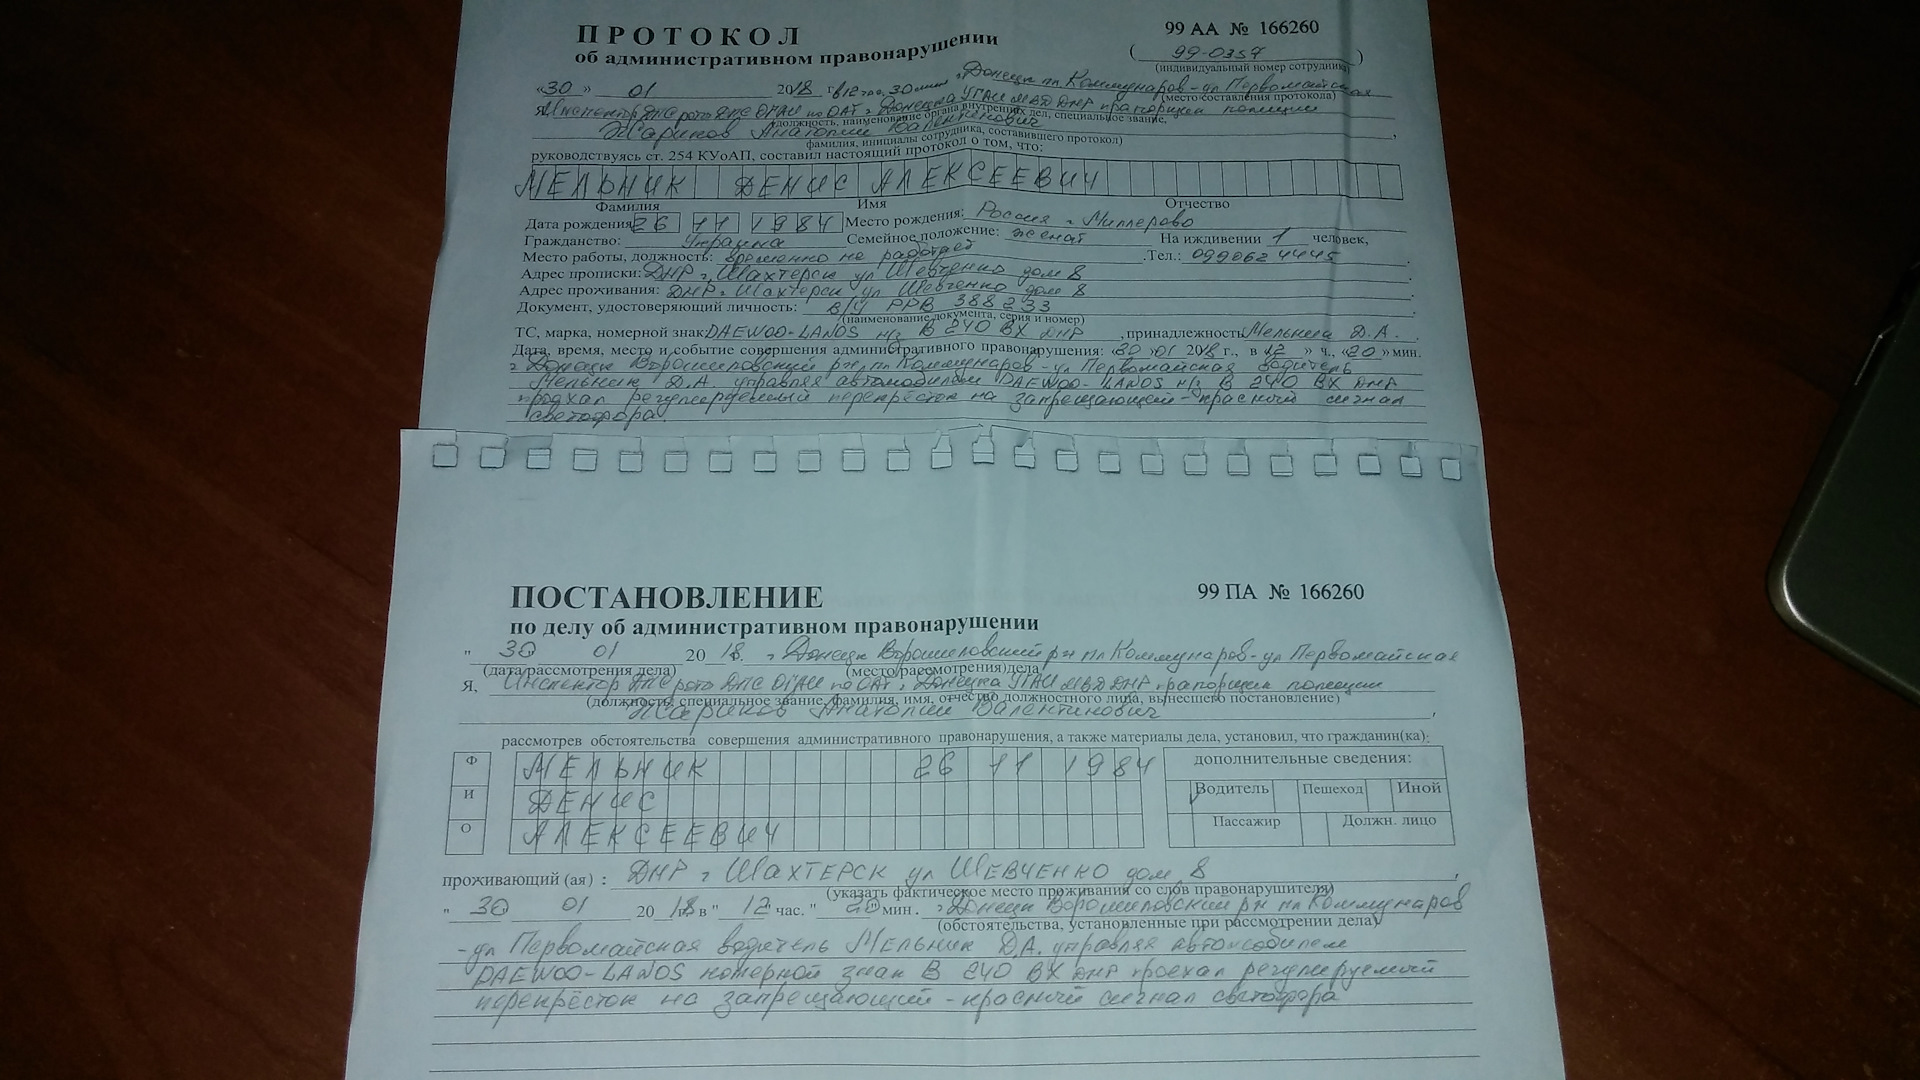 ПРОТОКОЛ 99 АА № 166260
об административном правонарушении ( 99-0357 )
(индивидуальный номер сотрудника)
«30» 01 2018 г. в 12 час. 30 мин г. Донецк пл. Коммунаров - ул Первомайская
(место составления протокола)
Я, Инспектор ДПС роты ДПС ОГАИ по ОАТ г. Донецка УГАИ МВД ДНР прапорщик полиции
(должность, наименование органа внутренних дел, специальное звание,
Жариков Анатолий Валентинович
фамилия, инициалы сотрудника, составившего протокол)
руководствуясь ст. 254 КУоАП, составил настоящий протокол о том, что:
МЕЛЬНИК ДЕНИС АЛЕКСЕЕВИЧ
Фамилия Имя Отчество
Дата рождения 26 11 1984 Место рождения: Россия г. Миллерово
Гражданство: Украина Семейное положение: женат На иждивении 1 человек,
Место работы, должность: временно не работает Тел.: 099062 4445
Адрес прописки: ДНР г. Шахтерск ул Шевченко дом 8
Адрес проживания: ДНР г. Шахтерск ул Шевченко дом 8
Документ, удостоверяющий личность: в/у РРВ 388233
(наименование документа, серия и номер)
ТС, марка, номерной знак: DAEWOO-LANOS н/з В 240 ВХ ДНР , принадлежность Мельник Д.А.
Дата, время, место и событие совершения административного правонарушения: «30» 01 2018 г., в «12» ч., «20» мин.
г. Донецк Ворошиловский р-н пл Коммунаров - ул Первомайская водитель
Мельник Д.А. управляя автомобилем DAEWOO-LANOS н/з В 240 ВХ ДНР
проехал регулируемый перекрёсток на запрещающий - красный сигнал
светофора.
ПОСТАНОВЛЕНИЕ 99 ПА № 166260
по делу об административном правонарушении
" 30 01 2018. г Донецк Ворошиловский р-н пл Коммунаров - ул Первомайская
(дата рассмотрения дела) (место рассмотрения дела)
Я, Инспектор ДПС роты ДПС ОГАИ по ОАТ г. Донецка УГАИ МВД ДНР прапорщик полиции
(должность, специальное звание, фамилия, имя, отчество должностного лица, вынесшего постановление)
Жариков Анатолий Валентинович ,
рассмотрев обстоятельства совершения административного правонарушения, а также материалы дела, установил, что гражданин(ка):
Ф МЕЛЬНИК 26 11 1984 дополнительные сведения:
И ДЕНИС Водитель Пешеход Иной
О АЛЕКСЕЕВИЧ Пассажир Должн. лицо
проживающий (ая) : ДНР г Шахтерск ул ШЕВЧЕНКО дом 8 ,
(указать фактическое место проживания со слов правонарушителя)
" 30 01 2018 в " 12 " час. " 20 " мин. г Донецк Ворошиловский р-н пл Коммунаров
(обстоятельства, установленные при рассмотрении дела)
- ул Первомайская водитель Мельник Д.А. управляя автомобилем
DAEWOO-LANOS номерной знак В 240 ВХ ДНР проехал регулируемый
перекрёсток на запрещающий - красный сигнал светофора